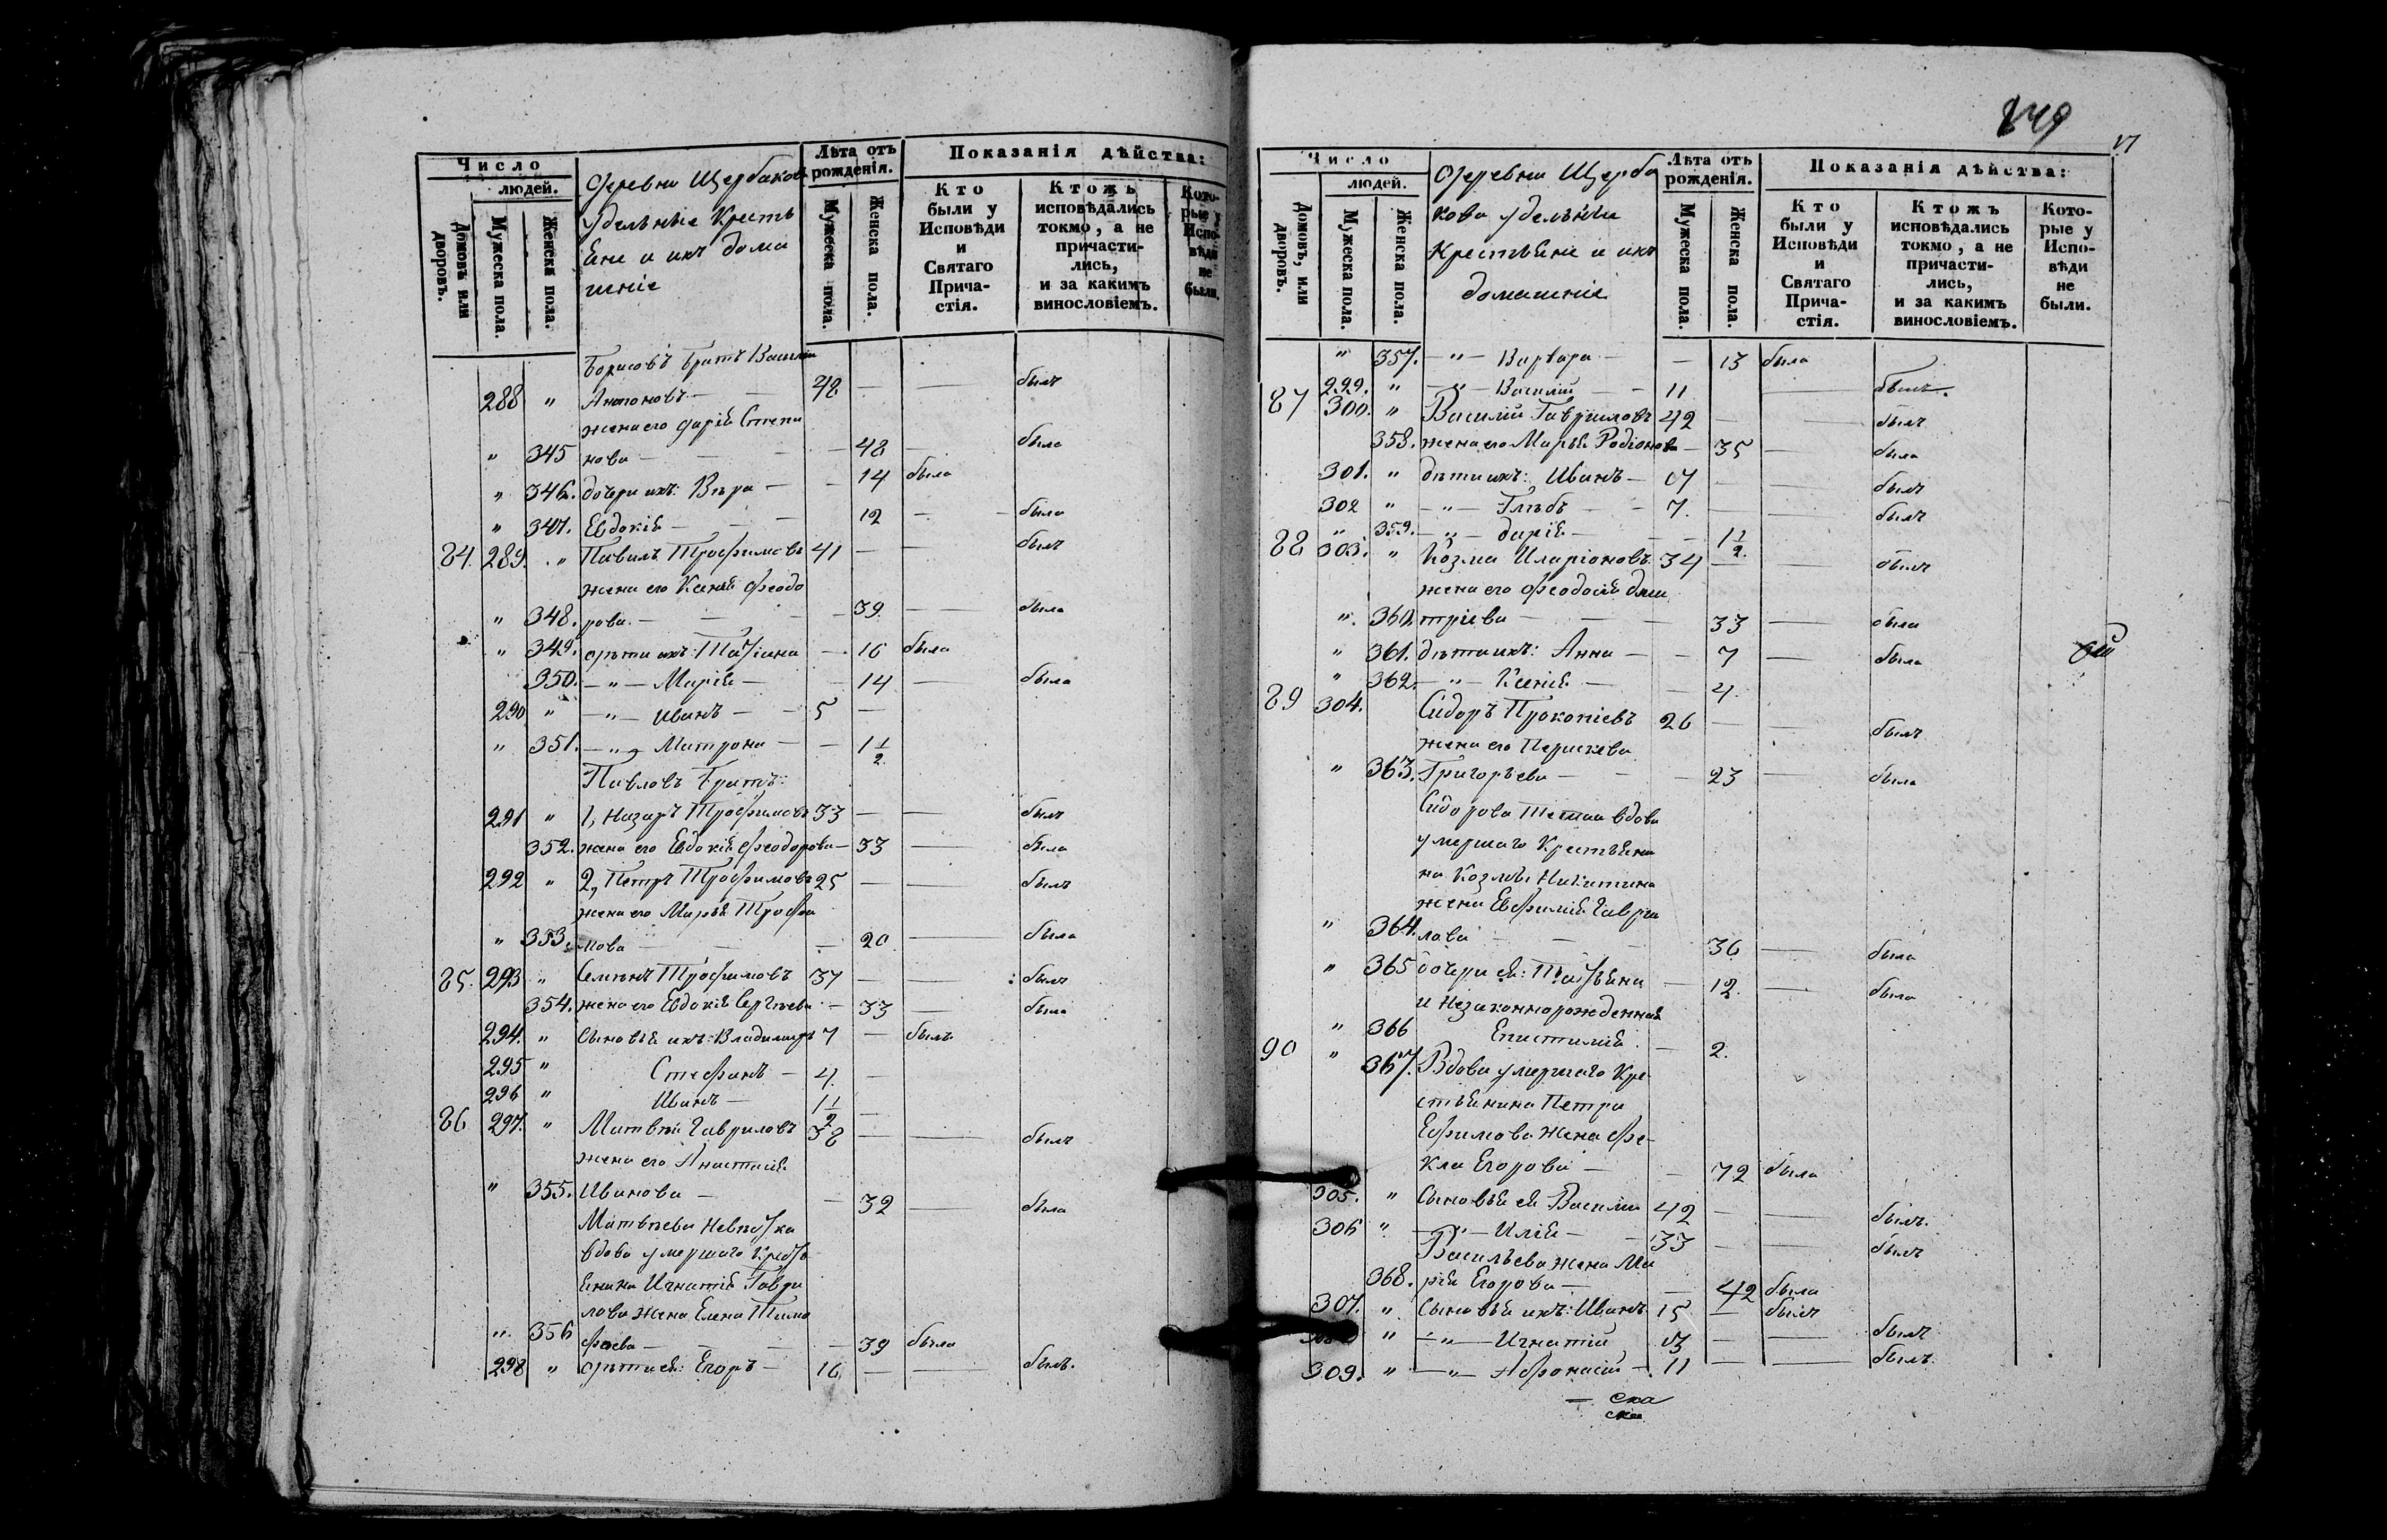 Число
людей.
Домовъ или дворовъ.
Мужеска пола.
Женска пола.
Деревни Щербаков
Удельніе Кресть
яне и ихъ дома
шніе
Лѣта отъ рожденія.
Мужеска пола.
Женска пола.
Показанія дѣйства:
Кто были у Исповѣди и Святаго Прича-стія.
Ктожъ исповѣдались токмо, а не причасти-лись, и за какимъ винословіемъ.
Кото-рые у Испо-вѣди не были.
Борисовъ братъ Василій
288 " Антоновъ — 48 — — былъ
жена его Дарія Степа
" 345 нова — — 48 — была
" 346. дочери ихъ: Вѣра — — 14 была
" 347. Евдокія — — 12 — — была
84. 289. " Павилъ Трофимовъ 41 — — былъ
жена его Ксенія Феодо
" 348. рова — — 39. — была
" 349. дѣти ихъ: Татіана — 16 была
350. — " — Марія — — 14 — была
290 " — " — Иванъ — — 5 —
" 351. — " — Матрона — — 1 1/2
Павловъ братъ:
291 " 1, Назаръ Трофимовъ 33 — — былъ
352. жена его Евдокія Феодорова — 33 — была
292 " 2, Петръ Трофимовъ 25 — — былъ
жена его Марья Трофи
" 353. мова — — 20 — была
85. 293 " Семенъ Трофимовъ 37 — — былъ
354. жена его Евдокія Сергѣева — 33 — была
294. " Сыновья ихъ: Владимиръ 7 — былъ
295 " Стефанъ — 4. —
296 " Иванъ — 1 1/2 —
86 297. " Матвѣй Гавриловъ 38 — — былъ
жена его Анастасія
" 355. Иванова — — 32 — была
Матвѣева невѣстка
вдова умершаго Кресть
янина Игнатія Гаври
лова жена Елена Тимо
" 356 феева — — 39 была
298 " дѣти ея: Егоръ — 16 — — былъ.
249
Число
людей.
Домовъ, или дворовъ.
Мужеска пола.
Женска пола.
Деревни Щерба
кова удельніи
Крестьяне и ихъ
домашніе
Лѣта отъ рожденія.
Мужеска пола.
Женска пола.
Показанія дѣйства:
Кто были у Исповѣди и Святаго Прича-стія.
Ктожъ исповѣдались токмо, а не причасти-лись, и за какимъ винословіемъ.
Кото-рые у Испо-вѣди не были.
" 357. — " — Варвара — — 13 была
299. " — " — Василій — — 11 — былъ.
87 300. " Василий Гавриловъ 42 — — былъ
358. жена его Марья Родіонова — 35 — была
301. " дѣти ихъ: Иванъ — — — былъ
302 " — " — Глѣбъ — — 7. — — былъ
" 359. — " — Дарія — — 1 1/2.
88 303. " Козма Иларіоновъ 34 — — былъ
жена его Феодосія Дми
" 360. тріева — — — 33 — была
" 361. дѣти ихъ: Анна — — 7 — была
" 362. — " — Ксенія — — 4.
89 304. Сидоръ Прокопіевъ 26 — — былъ
жена его Параскева
" 363. Григорьева — — — 23 — была
Сидорова тетка вдова
умершаго Крестьяни
на Козмы Никитина
жена Евфимія Гаври
" 364. лова — — — 36 — была
" 365 дочери ея: Татьяна — 12. — была
и Незаконнорожденная
" 366 Епистимія — 2.
90 " 367. Вдова умершаго Кре-
стьянина Петра
Ефимова жена Фе-
кла Егорова — — 72 была
305. " Сыновья ея Василій 42 — — былъ.
306 " — " — Илія — — 33 — — былъ
Васильева жена Ма
368. рія Егорова — — 42 была
307. " Сыновья ихъ: Иванъ 15 — былъ
" — " — Игнатій 13 — — былъ
309. " — " — Афонасій — 11 — — былъ.
— ска